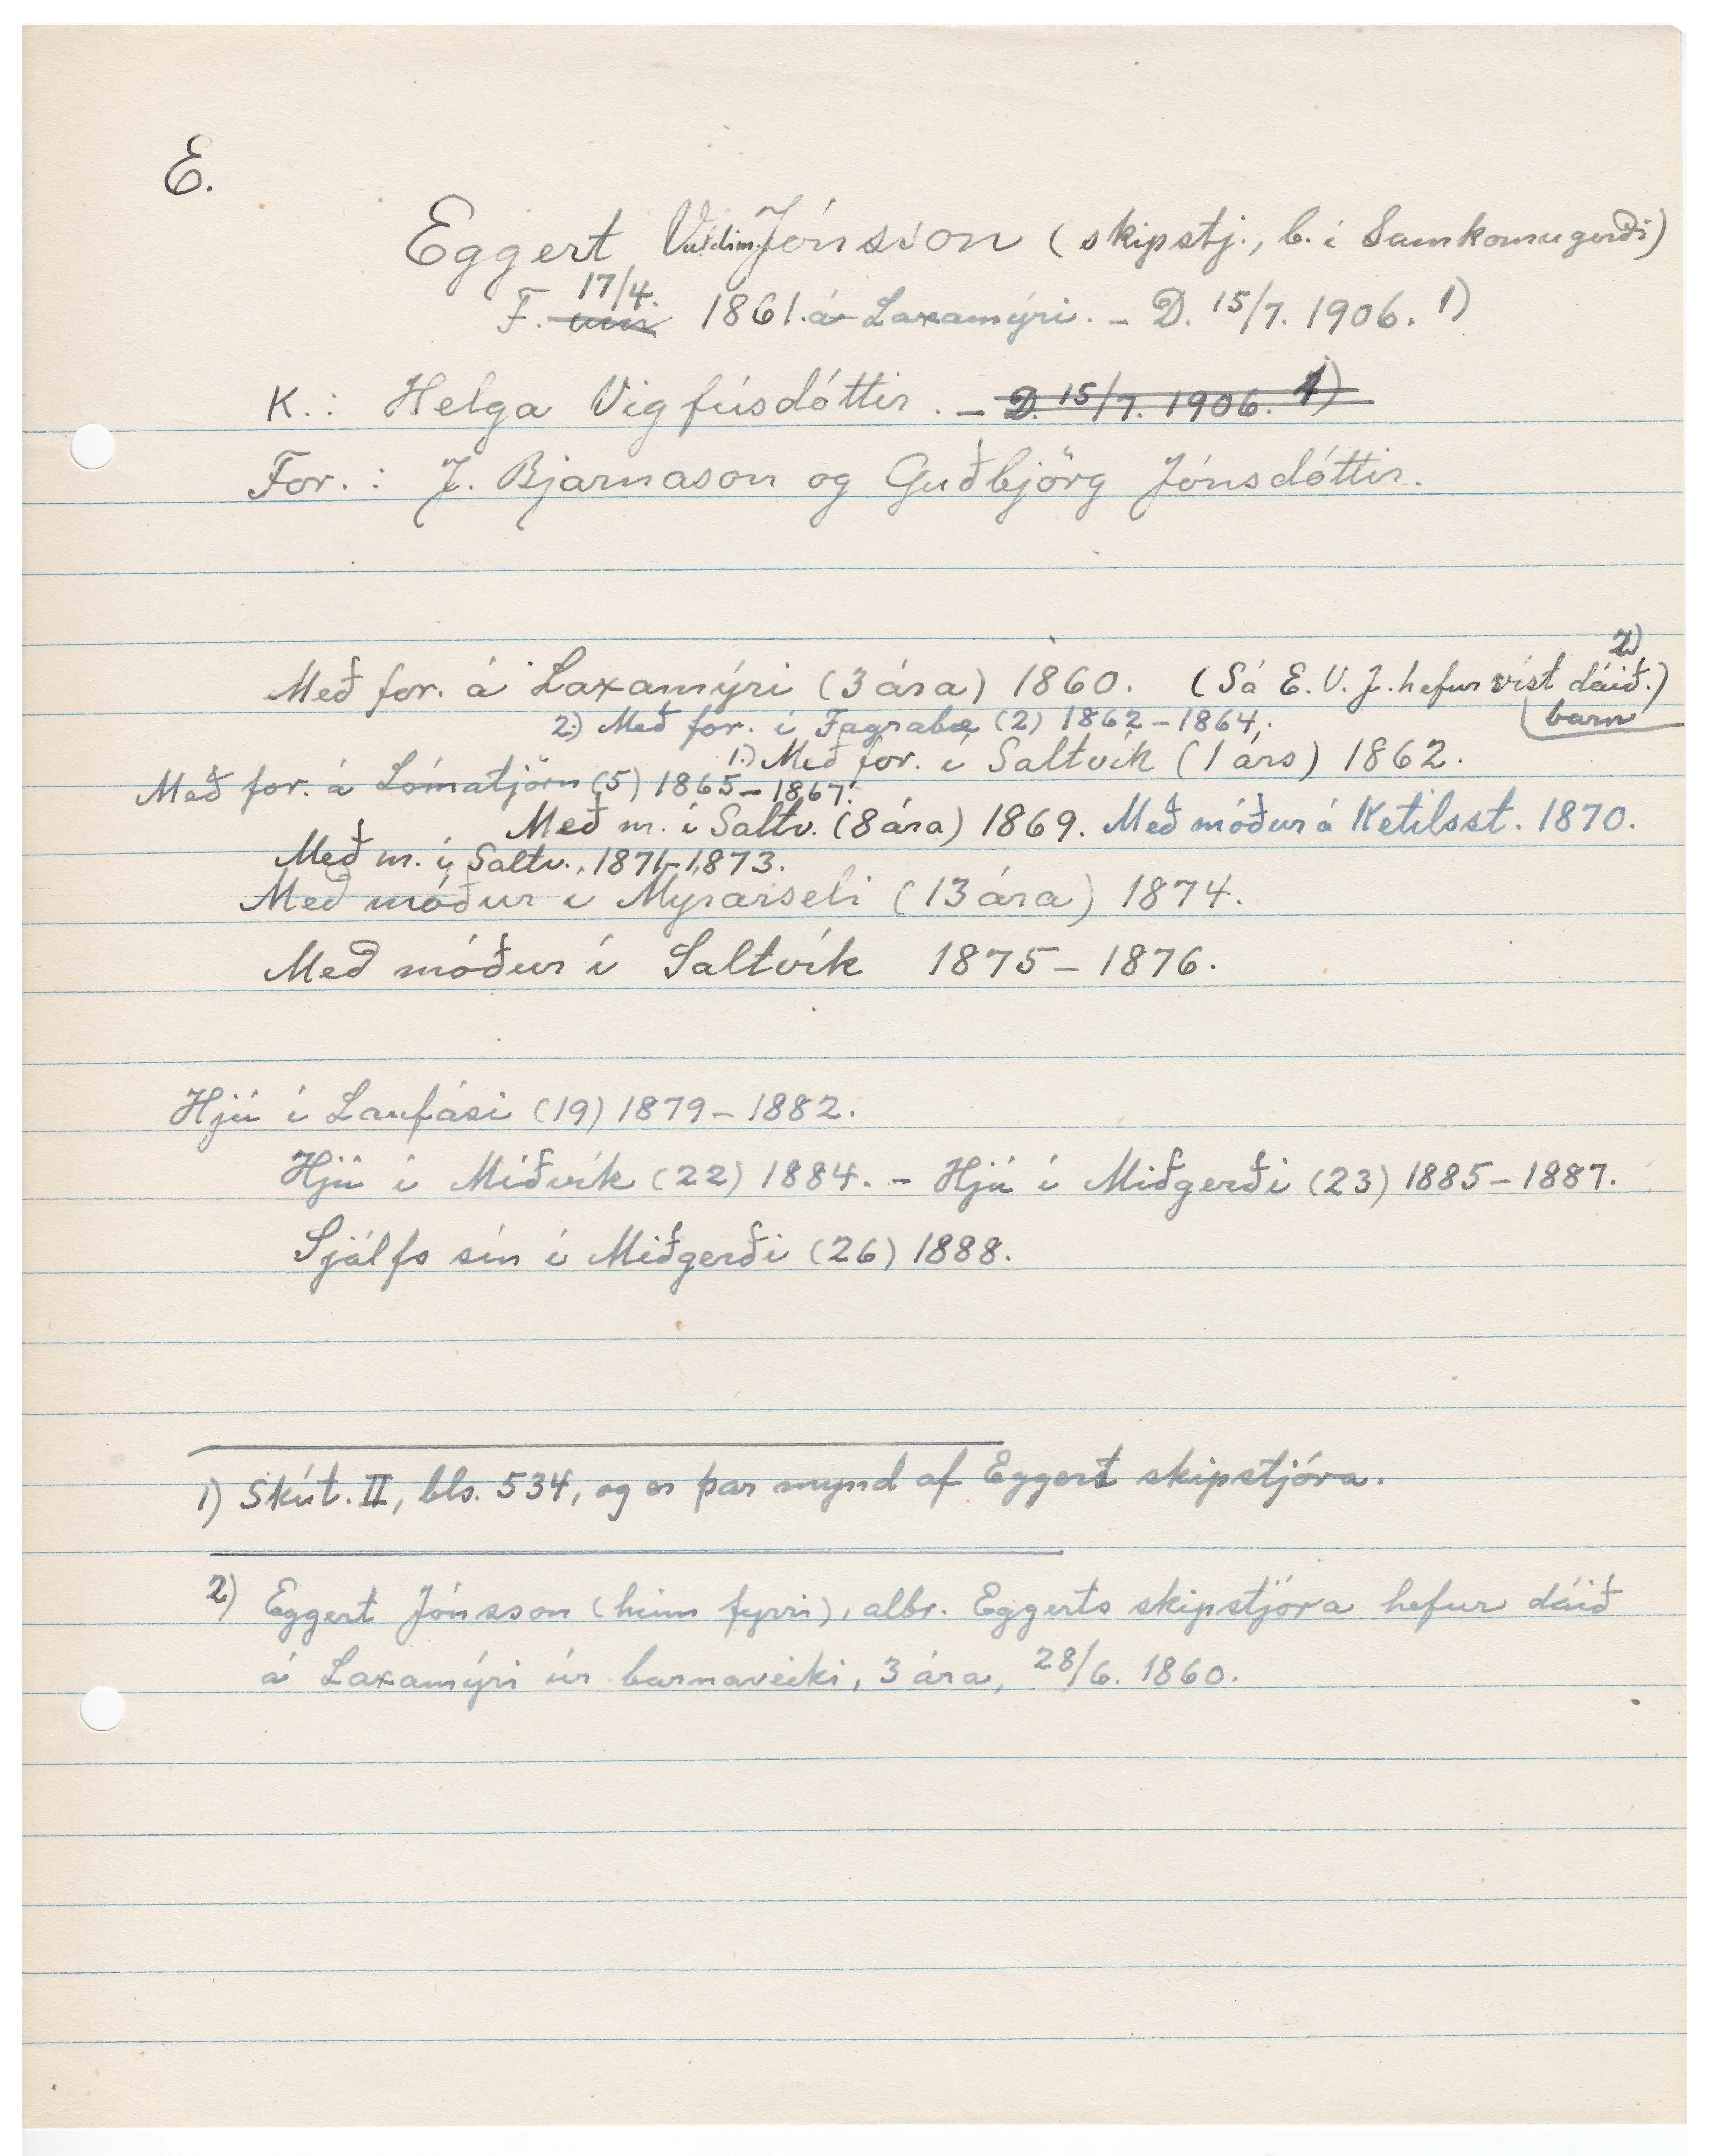 E.
Eggert Valdim. Jónsson (skipstj., b. í Samkomugerði)
F. 17/4. 1861. á Laxamýri. – D. 15/7. 1906. 1)
K.: Helga Vigfúsdóttir. – D. 15/7. 1906. 1)
For.: J. Bjarnason og Guðbjörg Jónsdóttir.
Með for. á Laxamýri (3 ára) 1860. (Sá E. V. J. hefur víst dáið.) 2)
barn
2.) Með for. í Fagrabæ (2) 1862–1864.
1.) Með for. í Saltvík (1 árs) 1862.
Með for. á Lómatjörn (5) 1865–1867.
Með m. í Saltv. (8 ára) 1869. Með móður á Ketilsst. 1870.
Með m. í Saltv., 1871–1873.
Með móður í Mýrarseli (13 ára) 1874.
Með móður í Saltvík 1875–1876.
Hjú í Laufási (19) 1879–1882.
Hjú í Miðvík (22) 1884. – Hjú í Miðgerði (23) 1885–1887.
Sjálfs sín í Miðgerði (26) 1888.
1) Skút. II, bls. 534, og er þar mynd af Eggert skipstjóra.
2) Eggert Jónsson (hinn fyrri), albr. Eggerts skipstjóra hefur dáið
á Laxamýri úr barnaveiki, 3 ára, 28/6. 1860.